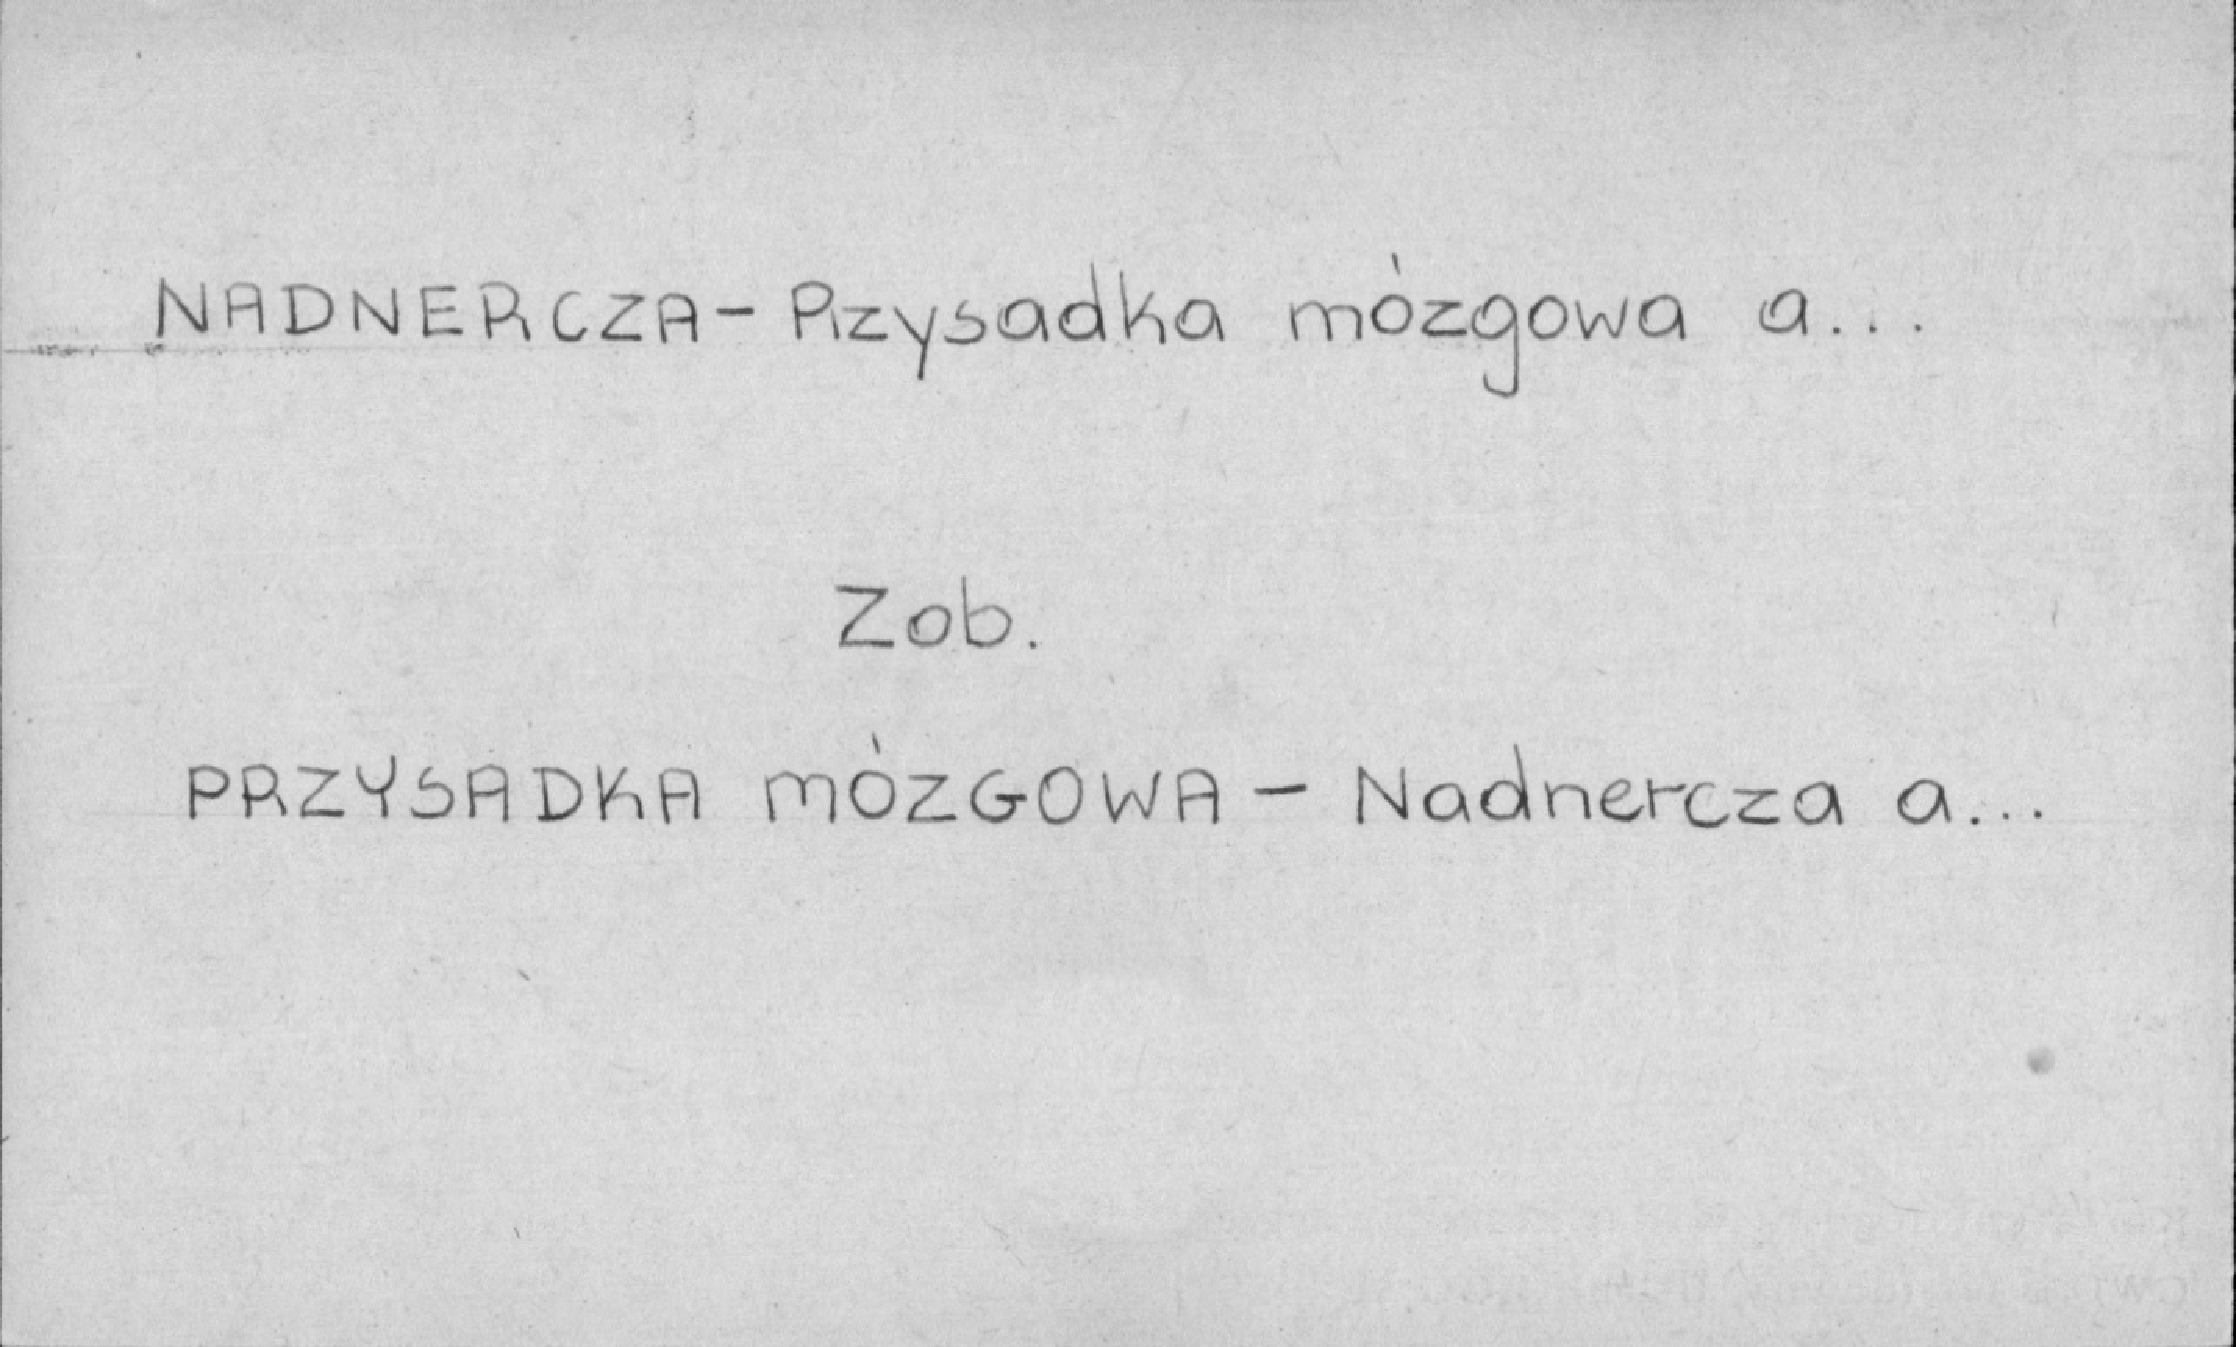 NADNERCZA - Przysadka mózgowa a...
Zob.
PRZYSADKA MÓZGOWA - Nadnercza a...